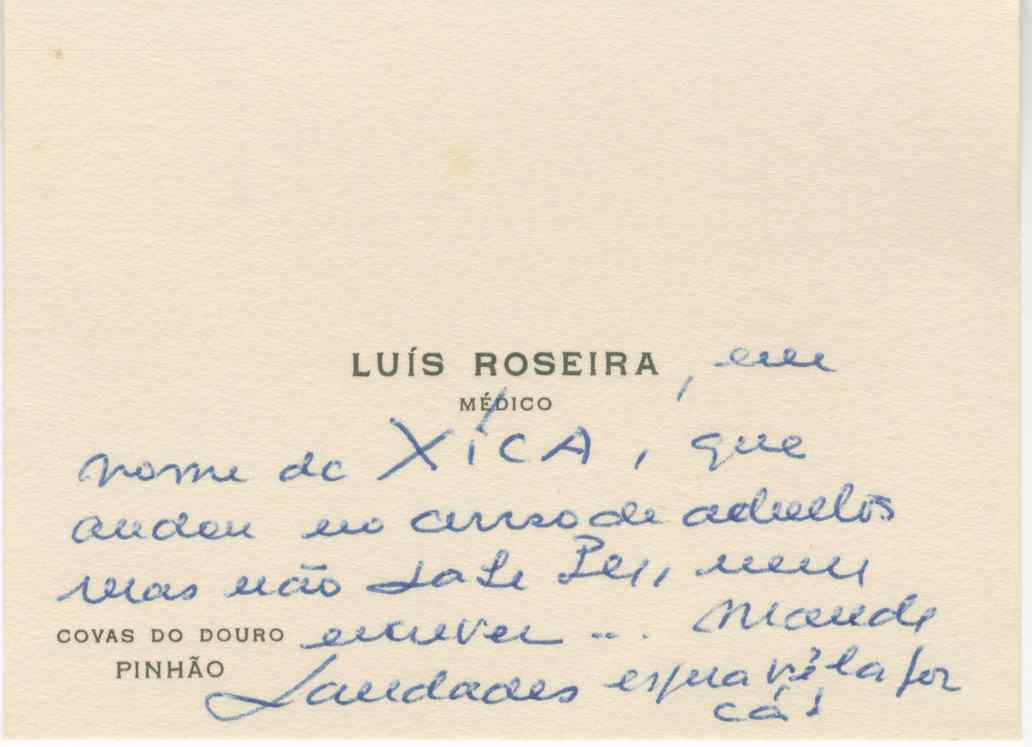 LUÍS ROSEIRA , em
MÉDICO
nome da XÍCA, que
andou no curso de adultos
mas não sabe ler, nem
COVAS DO DOURO escrever ... Manda
PINHÃO
Saudades espera vê-la por
cá!